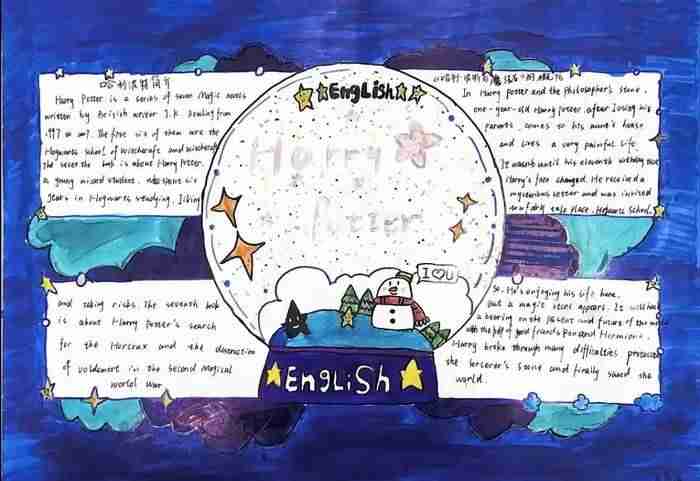 哈利波特简介
Harry Potter is a series of seven magic novels
written by British writer J.K. Rowling from
1997 to 2007. The first six of them are the
Hogwarts school of witchcraft and witchcraft
The seven the book is about Harry Potter,
a young mixed student, six
years in Hogwarts studying, living
and taking risks. The seventh book
is about Harry Potter's search
for the Horcrux and the destruction
of Voldemort in the second magical
world war
★EngLish★
Harry
Potter
I ♡ U
★EngLiSh★
哈利·波特
In Harry Potter and the philosopher's stone,
one-year-old Harry Potter, after losing his
parents, comes to his aunt's house
and lives a very painful life.
It wasn't until his eleventh birthday that
Harry's fate changed. He received a
mysterious letter and was invited
to a place. Hogwarts School.
So, He's enjoying his life here,
but a magic stone appears. It will have
a bearing on the present and future of the world
with the help of good friends Ron and Hermione,
Harry broke through many difficulties protected
the sorcerer's stone and finally saved the
world.